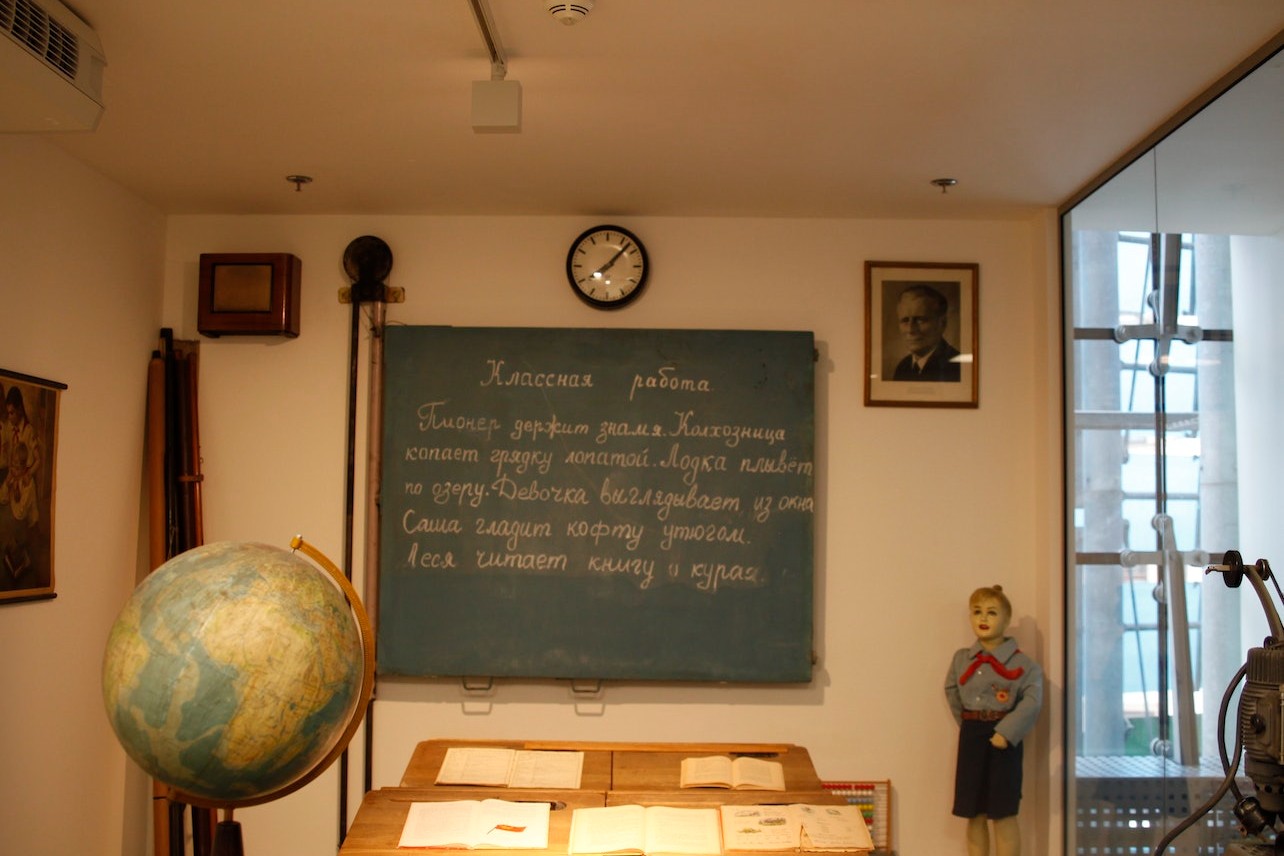 Классная работа.
Пионер держит знамя. Колхозница
копает грядку лопатой. Лодка плывёт
по озеру. Девочка выглядывает из окна
Саша гладит кофту утюгом.
Леся читает книгу о